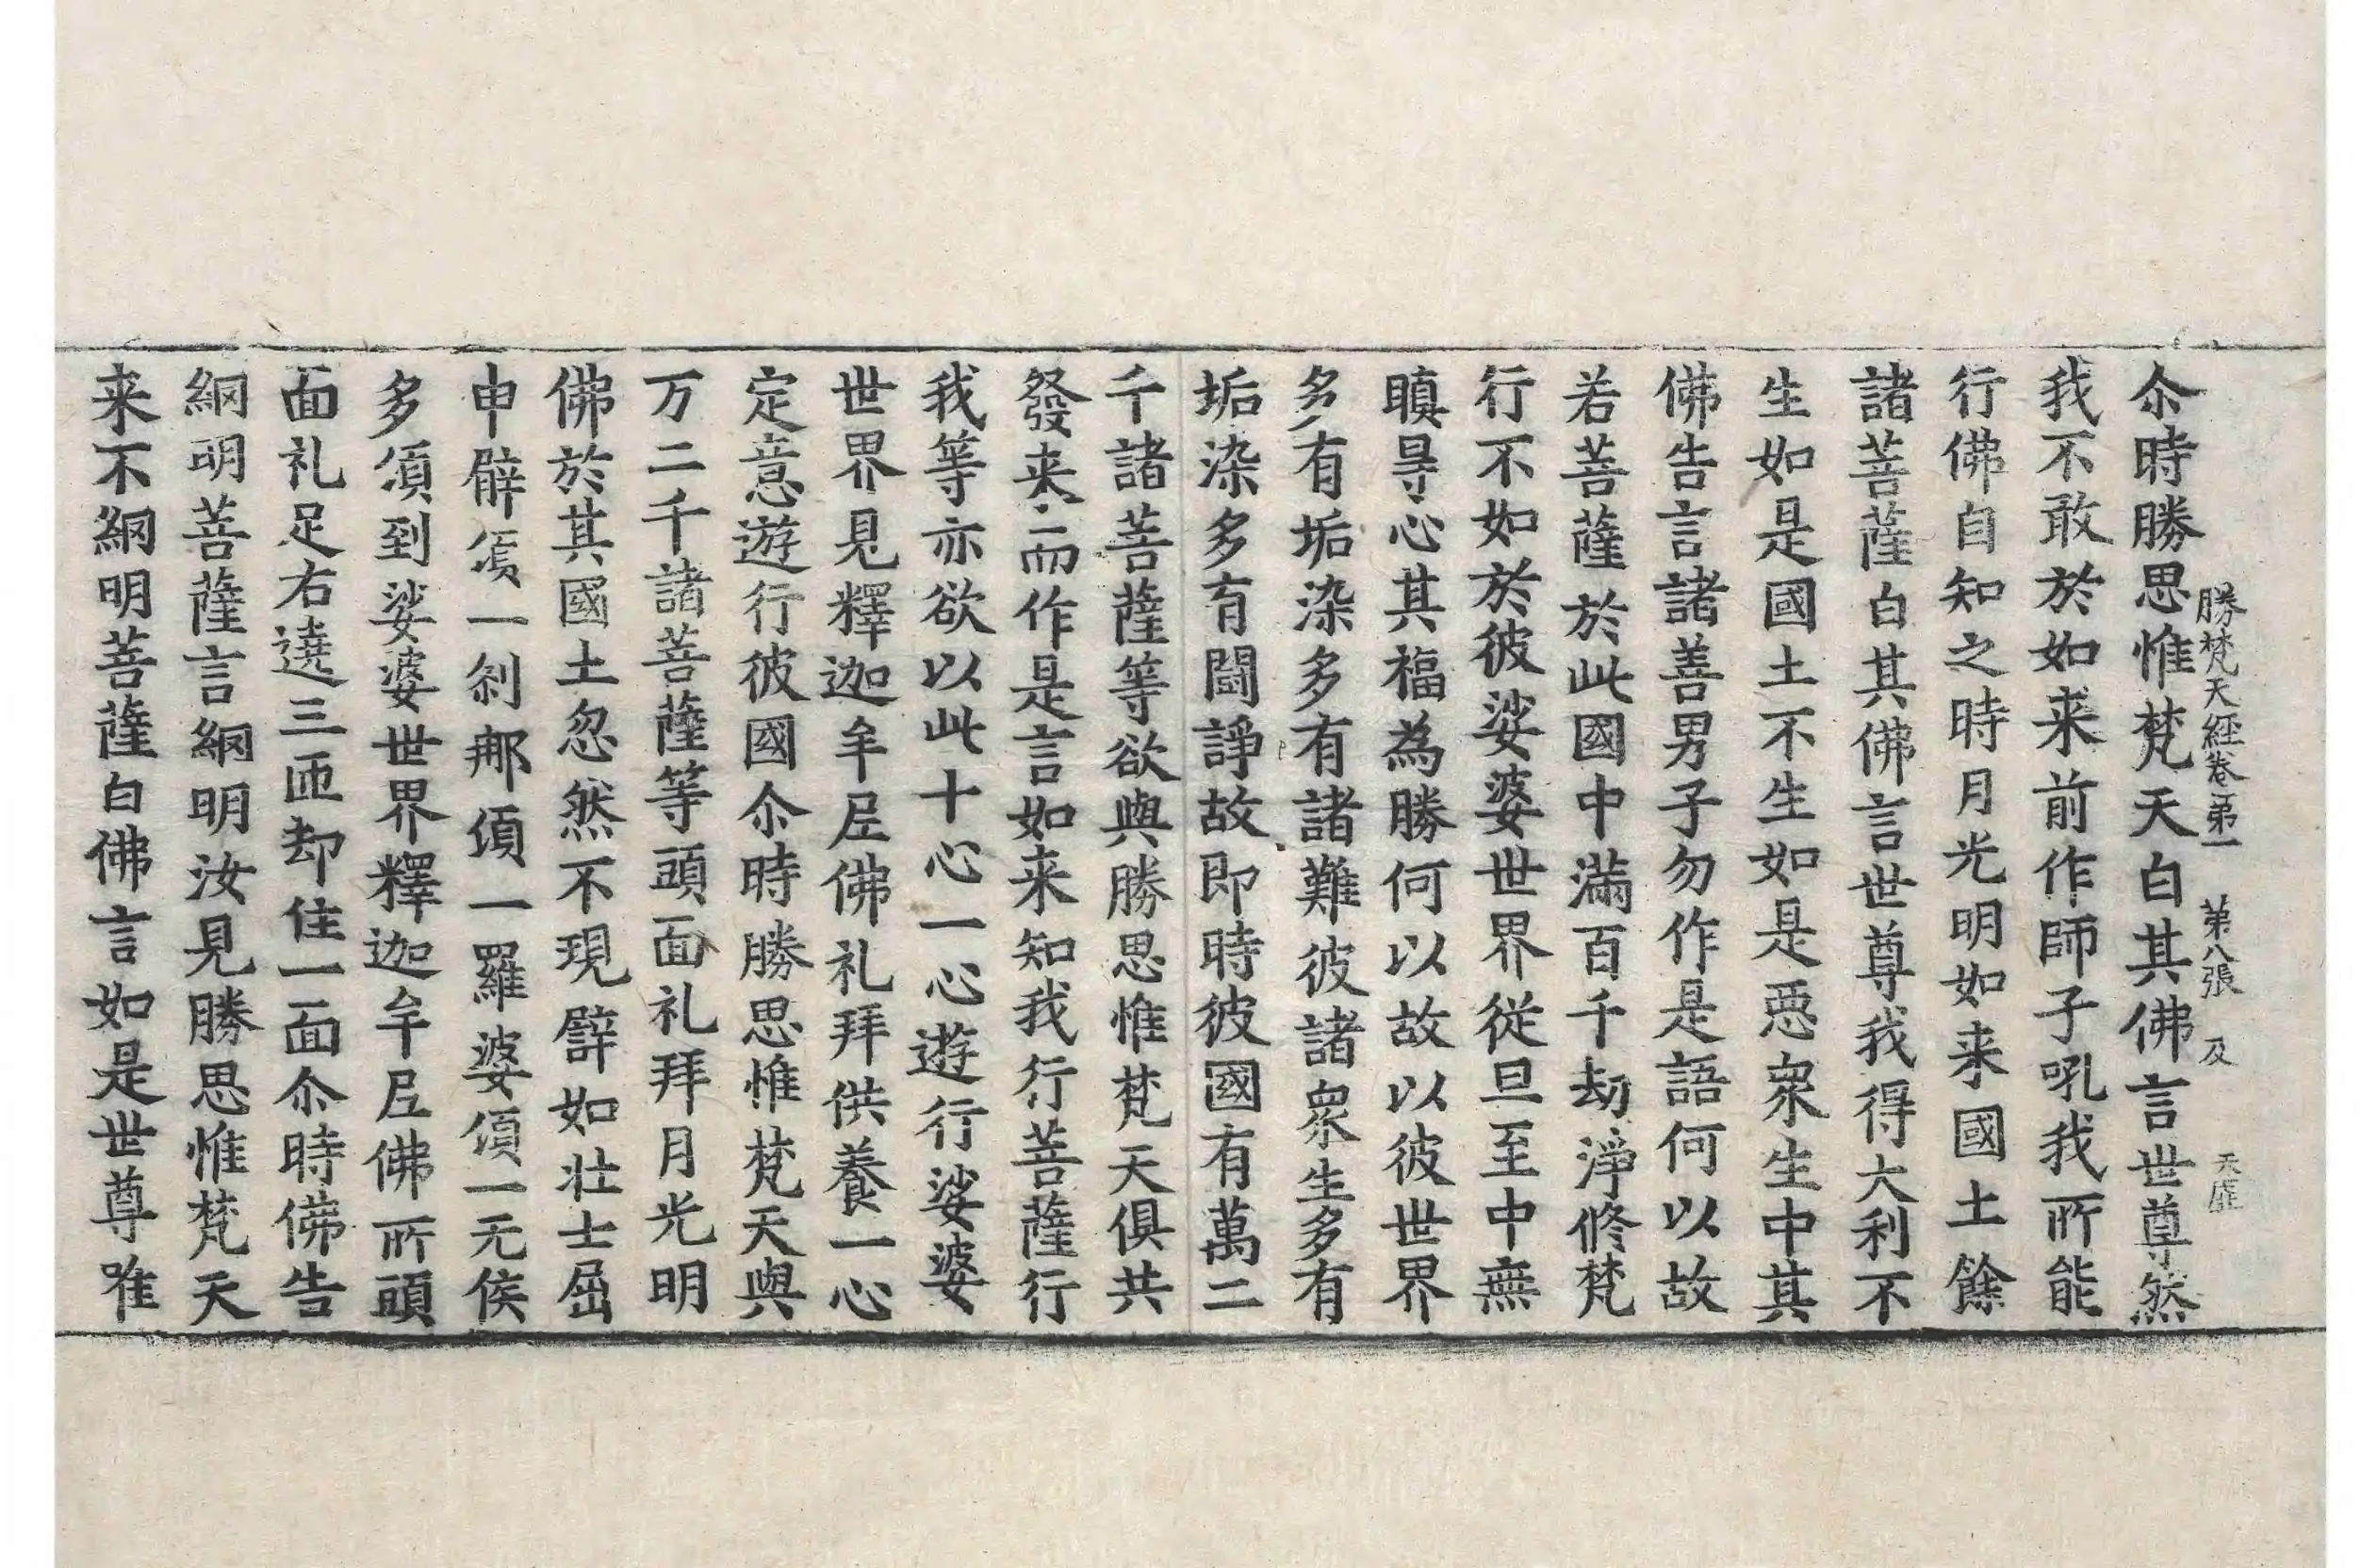 勝梵天經卷第一 第八張 及 天
尒時勝思惟梵天白其佛言世尊然
我不敢於如来前作師子吼我所能
行佛自知之時月光明如来國土餘
諸菩薩白其佛言世尊我得大利不
生如是國土不生如是惡衆生中其
佛告言諸善男子勿作是語何以故
若菩薩於此國中滿百千劫淨脩梵
行不如於彼娑婆世界從旦至中無
瞋㝵心其福為勝何以故以彼世界
多有垢染多有諸難彼諸衆生多有
垢染多有鬪諍故即時彼國有萬二
千諸菩薩等欲與勝思惟梵天俱共
發来而作是言如来知我行菩薩行
我等亦欲以此十心一心遊行娑婆
世界見釋迦牟尼佛礼拜供養一心
定意遊行彼國尒時勝思惟梵天與
万二千諸菩薩等頭面礼拜月光明
佛於其國土忽然不現譬如壮士屈
申臂湏一刹那湏一羅婆湏一无侯
多湏到娑婆世界釋迦牟尼佛所頭
面礼足右遶三匝却住一面尒時佛告
網明菩薩言網明汝見勝思惟梵天
来不網明菩薩白佛言如是世尊唯